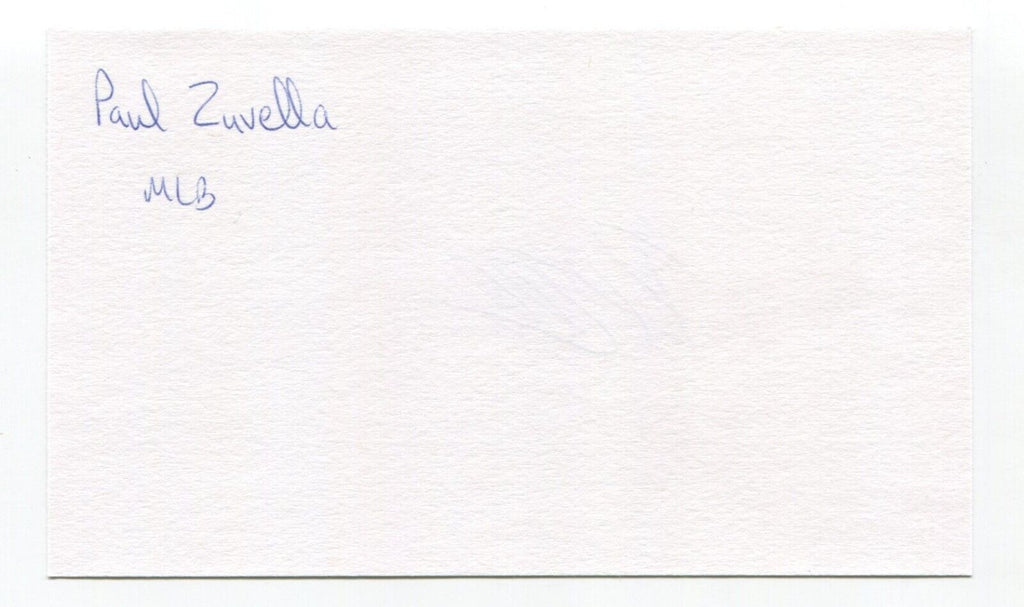 Paul Zuvella
MLB